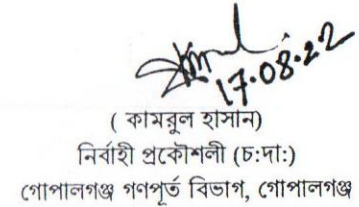 17.08.22
( কামরুল হাসান)
নির্বাহী প্রকৌশলী (চ:দা:)
গোপালগঞ্জ গণপূর্ত বিভাগ, গোপালগঞ্জ